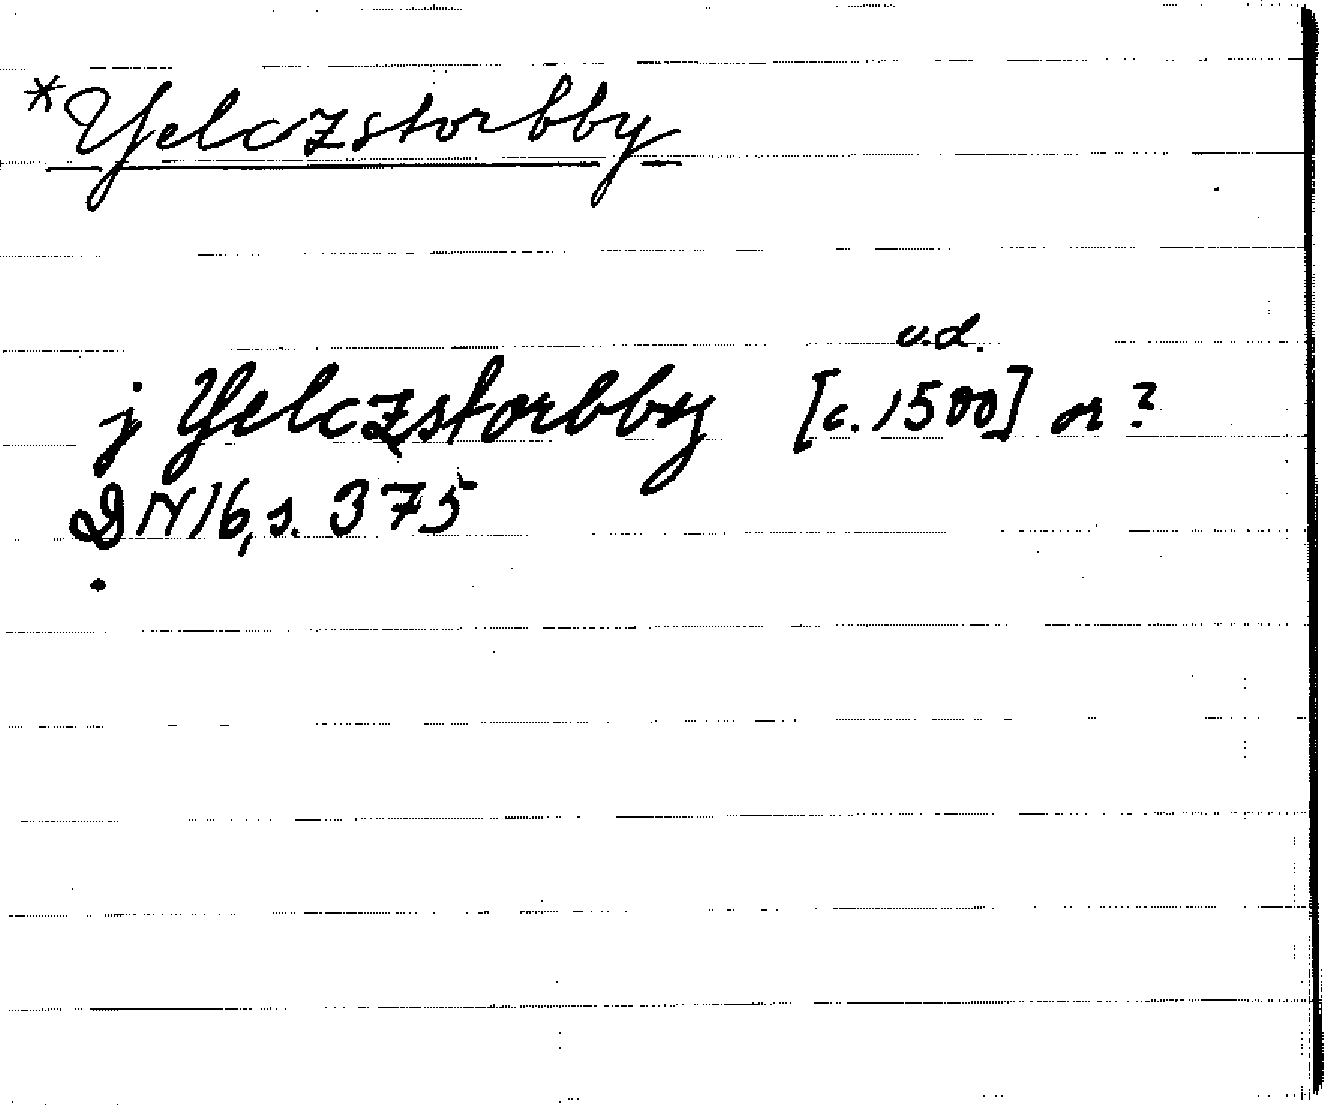 *Yelczstorbby
u.d.
j Yelczstorbby [c. 1500] or ?
DN 16, s. 375